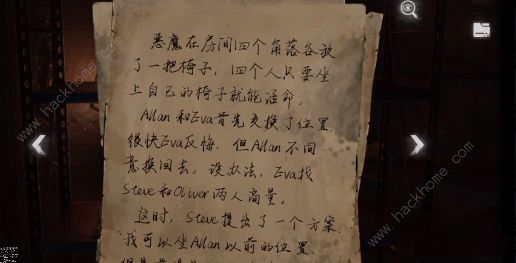 恶魔在房间四个角落各放
了一把椅子，四个人只要坐
上自己的椅子就能活命。
Allan和Eva首先交换了位置，
很快Eva反悔，但Allan不同
意换回去。没办法，Eva找
Steve和Oliver两人商量。
这时，Steve提出了一个方案：
“我可以坐Allan以前的位置，
www.hackhome.com
www.hackhome.com
www.hackhome.com
www.hackhome.com